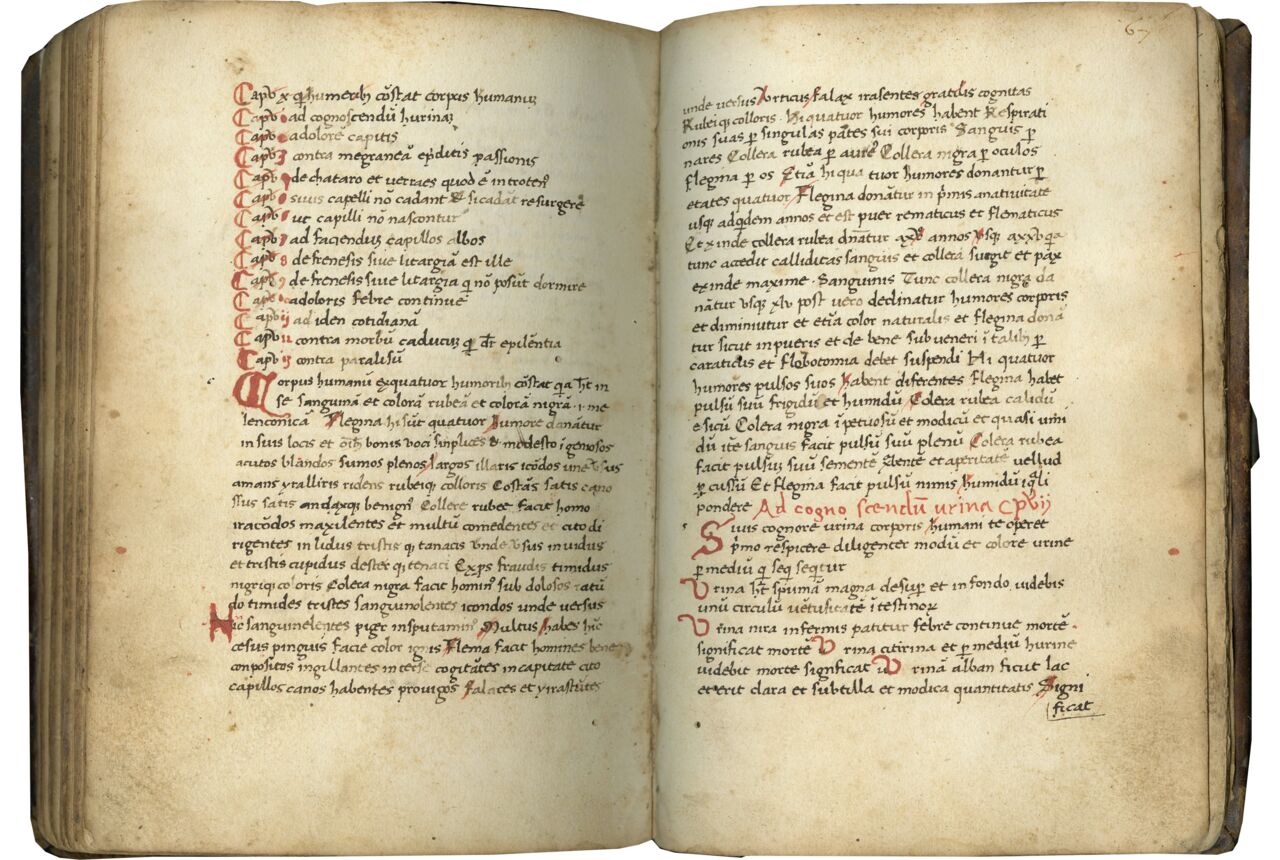 Capв x qͥ humerib cōstat corpus humanuʒ
Capв i ad cognoscendū hurinaʒ
Capв adolorē capitis
Capв 3 contra megraneā ep̄ditis passionis
Capв de chataro et verraes quod ē introten̄
Capв sivis capelli nō cadant & si cadāt resurgerē
Capв ut capilli nō nascontur
Capв 7 ad facienduʒ capillos albos
Capв 8 de frenesis sive litargiā est ille
Capв 9 de frenesis sive litargia q nō posūt dormire
Cape adoloris febre continuē
Capв ii ad iden cotidianā
Capв contra morbū caducuʒ q dr̄ epilentia
Capв contra paralisū
Corpus humanū exquatuor humorib cōstat qa ht̄ in
se sanguinā et colorā rubeā et colorā nigrā · i · me
lenconicā Flegina hi sūt quatuor humore danātur
in suis locis et oīb bonis voci sinplices & modesto igenosos
acutos blandos sumos plenos largos illaris icōdos une vsus
amans yralliris ridens rubeiqꝫ colloris Costās satis capo
ssus satis andaxqꝫ benign̄ Collere rubee facit homo
iracōdos maxilentes et multū comedentes et cito di
rigentes in lidus tristis qꝫ tanacis vnde vsus in vidus
et tristis cupidus dester qꝫ tenaci Exps fraudis timidus
nigriqꝫ coloris Colera nigra facit homin̄ sub dolosos ratū
do timides tristes sanguinolentes icondos unde versus
Hic sanguinelentes piger insputamin̄ Multus habes hic
cesus pinguis facie color ignis Flema facit homines bene
conpositos ingillantes interse cogitātes in capitate cito
capillos canos habentes provigos falaces et yirastutes
67
unde versus vrticus falax irasentes gratdis cognitas
Rulei qꝫ colloris · Hi quatuor humores habent Respirati
onis suas ꝑ singulas pātes sui corporis Sanguis ꝑ
nares Collera rubea ꝑ aurē Collera nigra ꝑ oculos
flegina ꝑ os Etiā hi qua tuor humores donantur ꝑ
etates quatuor Flegina donātur in pͥmis anativitate
usqꝫ adqͥdem annos et est puer rematicus et flematicus
Et exinde collera rubea dn̄atur axv annos vsqꝫ axxv qa
tunc accedit calliditas sanguis et collera surgit et pax
exinde maxime · Sanguinis Tunc collera nigra da
nātur vsqꝫ xlv post vero declinatur humores corporis
et diminiutur et etiā color naturalis et flegina donā
tur sicut in pueris et de bene sub veneri i talib ꝑ
caraticlis et flobotomia debet suspendi Hi quatuor
humores pulsos suos habent diferentes flegina habet
pulsū suū frigidū et humidū Colera rubea calidū
e sicū Colera nigra ipetuosū et modicū et quasi umi
dū itē sanguis facit pulsū suū plenū Colera rubea
facit pulsuʒ suū sementē et aperitatē vellud
ꝑcussū Et flegina facit pulsū nimis humidū iqͥli
pondere Ad cogno scendū urina Cpв ij
Sivis cognore urina corporis humani te operet
pͥmo respicere diligenter modū et colorē urine
ꝑ mediū qͥ seqͥ seqͥtur
Vrina ht̄ spumā magna desuꝑ et in fondo videbis
unū circulū vetusitatē i testinoꝝ
Vrina nira infermis patitur febre continue mortē ·
significat mortē Vrina citirina et ꝑ mediū hurine
videbit morte significat Vrinā alban ficut lac
et erit clara et subtilla et modica quantitatis Signi
ficat